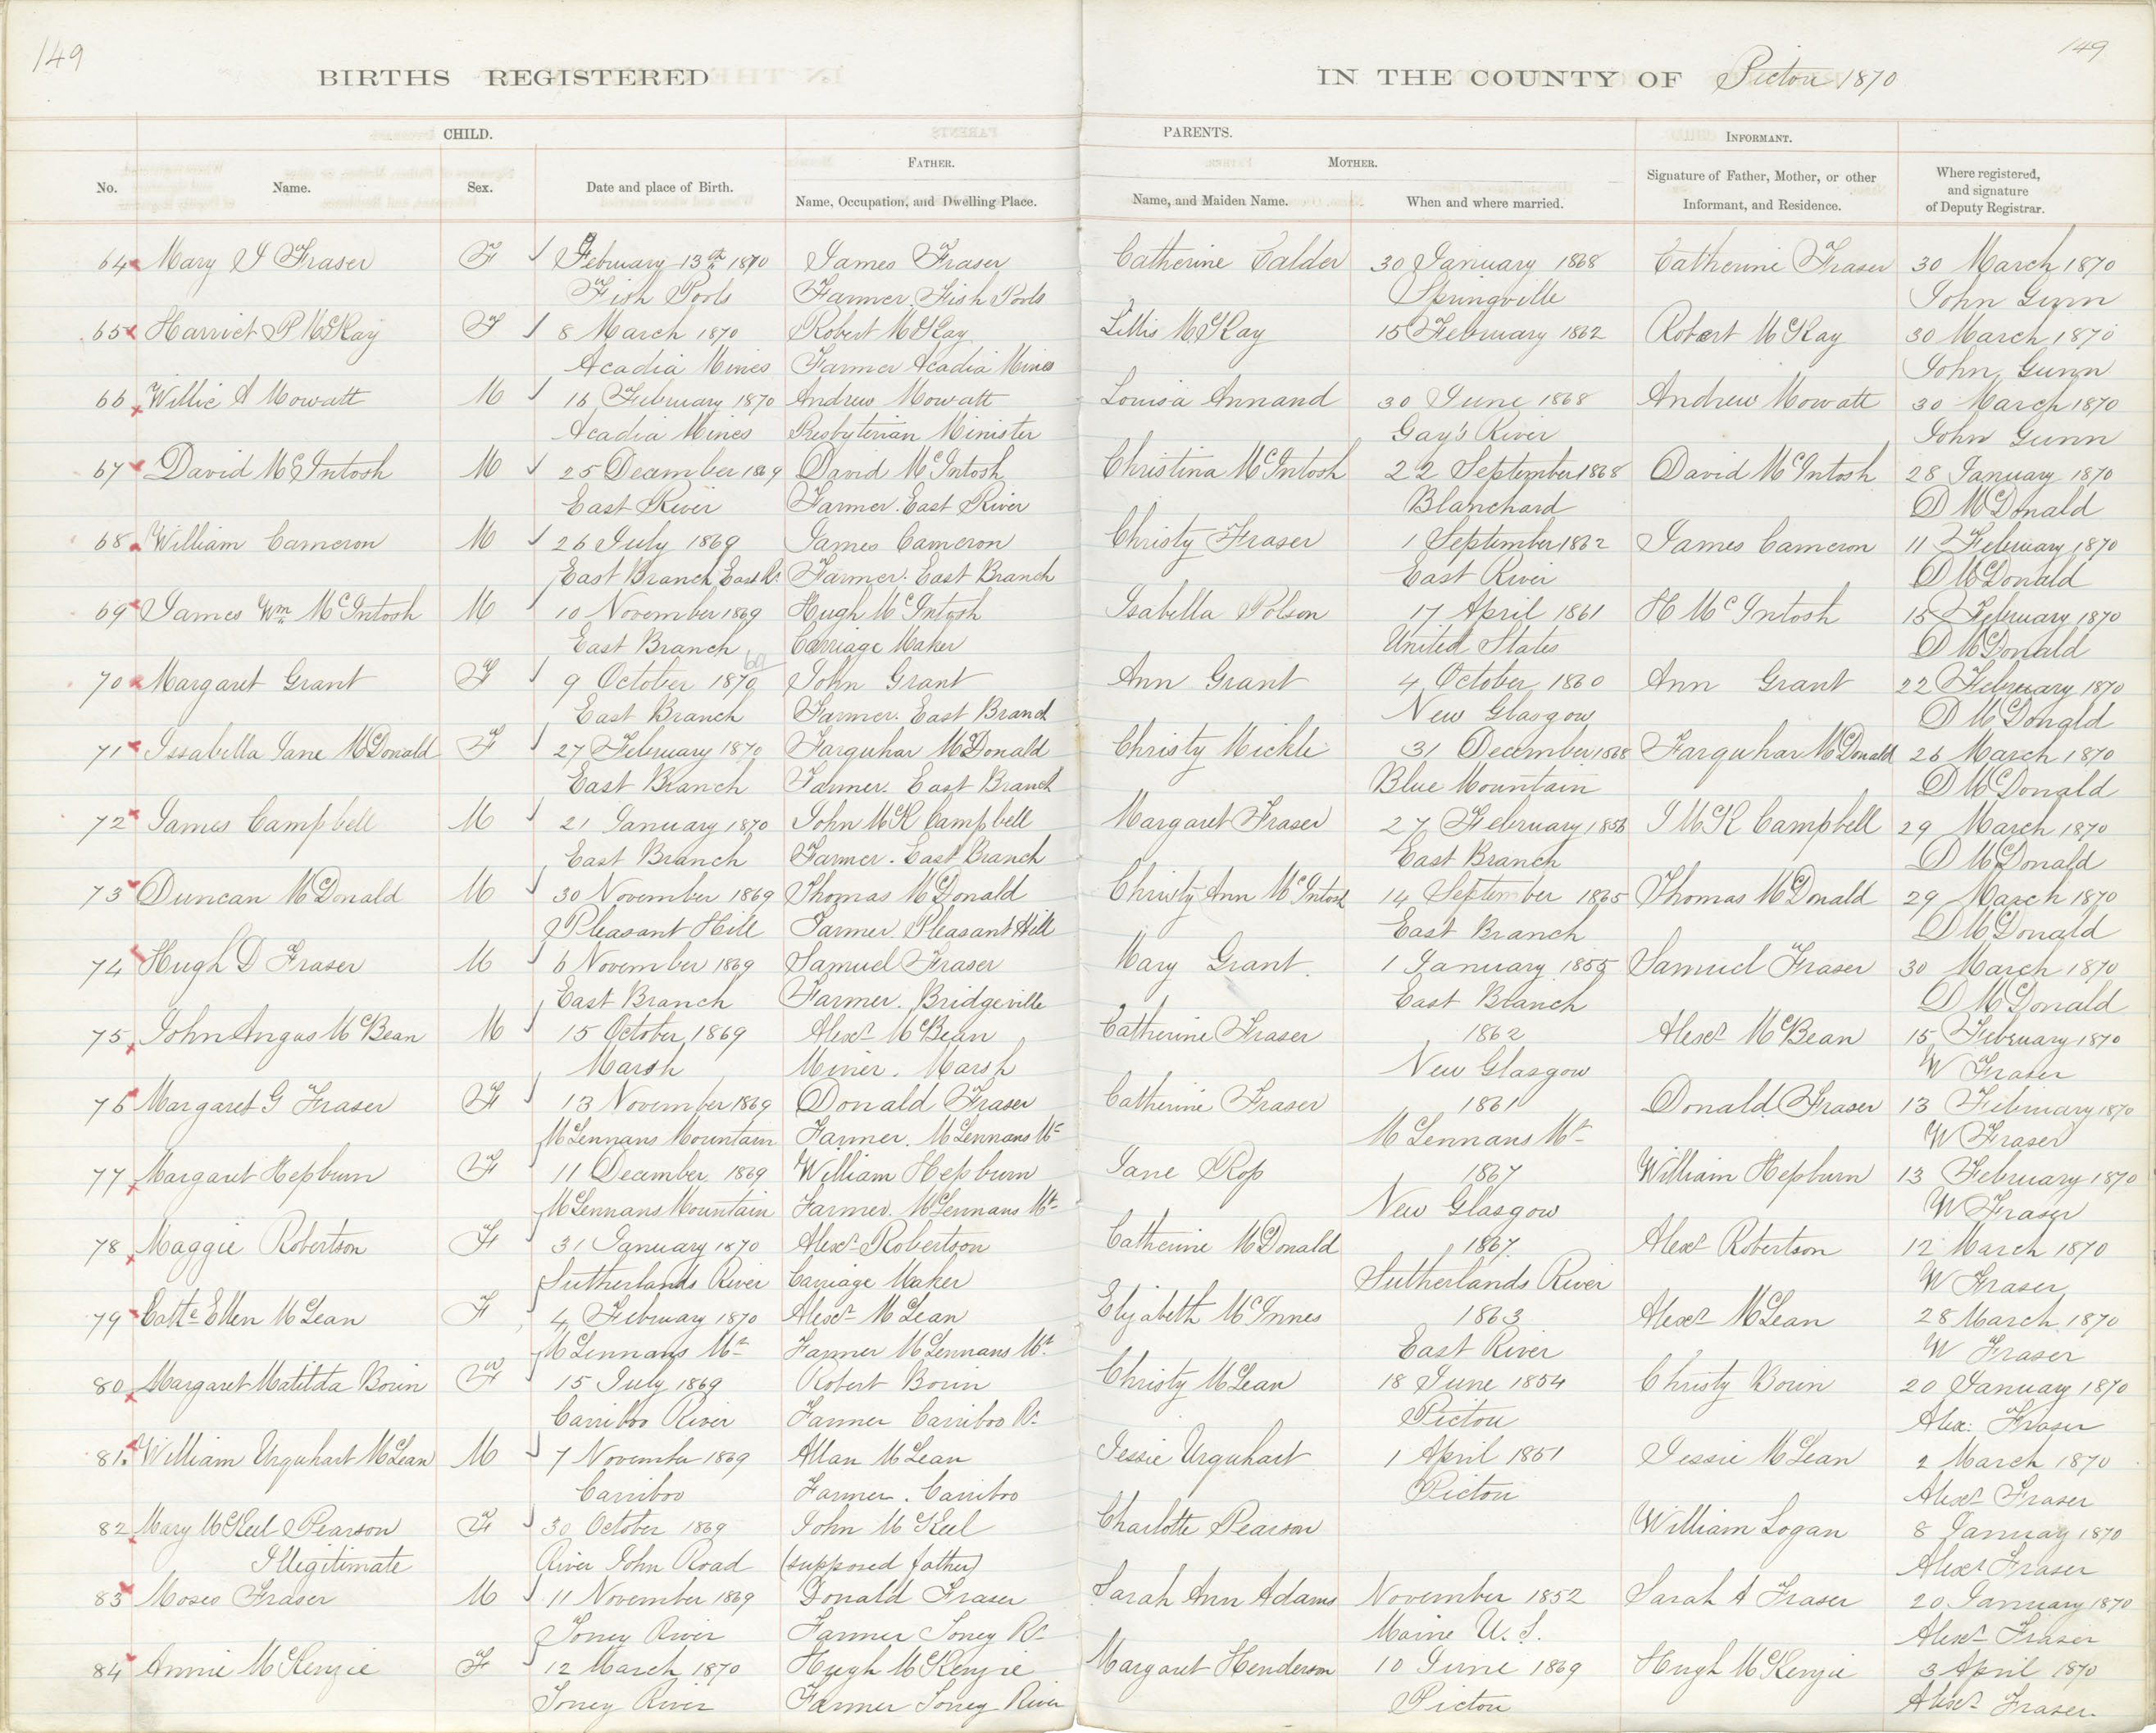 149
149
BIRTHS REGISTERED
IN THE COUNTY OF Pictou 1870
CHILD.
PARENTS.
INFORMANT.
FATHER.
MOTHER.
No.
Name.
Sex.
Date and place of Birth.
Name, Occupation, and Dwelling Place.
Name, and Maiden Name.
When and where married.
Signature of Father, Mother, or other
Informant, and Residence.
Where registered,
and signature
of Deputy Registrar.
64 Mary J Fraser F February 13th 1870 James Fraser Catherine Calder 30 January 1868 Catherine Fraser 30 March 1870
Fish Pools Farmer. Fish Pools Springville John Gunn
65 Harriet P McKay F 8 March 1870 Robert McKay Lillis McKay 15 February 1862 Robert McKay 30 March 1870
Acadia Mines Farmer Acadia Mines John Gunn
66 Willie A Mowatt M 16 February 1870 Andrew Mowatt Louisa Annand 30 June 1868 Andrew Mowatt 30 March 1870
Acadia Mines Presbyterian Minister Gay's River John Gunn
67 David McIntosh M 25 December 1869 David McIntosh Christina McIntosh 22 September 1868 David McIntosh 28 January 1870
East River Farmer. East River Blanchard D McDonald
68 William Cameron M 26 July 1869 James Cameron Christy Fraser 1 September 1862 James Cameron 11 February 1870
East Branch East Rr Farmer. East Branch East River D McDonald
69 James Wm McIntosh M 10 November 1869 Hugh McIntosh Isabella Polson 17 April 1861 H McIntosh 15 February 1870
East Branch Carriage Maker United States D McDonald
69
70 Margaret Grant F 9 October 1870 John Grant Ann Grant 4 October 1860 Ann Grant 22 February 1870
East Branch Farmer. East Branch New Glasgow D McDonald
71 Issabella Jane McDonald F 27 February 1870 Farquhar McDonald Christy Mickle 31 December 1868 Farquhar McDonald 26 March 1870
East Branch Farmer. East Branch Blue Mountain D McDonald
72 James Campbell M 21 January 1870 John McK Campbell Margaret Fraser 27 February 1856 J McK Campbell 29 March 1870
East Branch Farmer. East Branch East Branch D McDonald
73 Duncan McDonald M 30 November 1869 Thomas McDonald Christy Ann McIntosh 14 September 1865 Thomas McDonald 29 March 1870
Pleasant Hill Farmer. Pleasant Hill East Branch D McDonald
74 Hugh D Fraser M 6 November 1869 Samuel Fraser Mary Grant. 1 January 1855 Samuel Fraser 30 March 1870
East Branch Farmer. Bridgeville East Branch D McDonald
75 John Angus McBean M 15 October 1869 Alexr McBean Catherine Fraser 1862 Alexr McBean 15 February 1870
Marsh Miner. Marsh New Glasgow W Fraser
76 Margaret G Fraser F 13 November 1869 Donald Fraser Catherine Fraser 1861 Donald Fraser 13 February 1870
McLennans Mountain Farmer. McLennans Mt McLennans Mt W Fraser
77 Margaret Hepburn F 11 December 1869 William Hepburn Jane Ross 1867 William Hepburn 13 February 1870
McLennans Mountain Farmer. McLennans Mt New Glasgow W Fraser
78 Maggie Robertson F 31 January 1870 Alexr Robertson Catherine McDonald 1867. Alexr Robertson 12 March 1870
Sutherlands River Carriage Maker Sutherlands River W Fraser
79 Cathe Ellen McLean F 4 February 1870 Alexr McLean Elizabeth McInnes 1863 Alexr McLean 28 March 1870
McLennans Mt Farmer McLennans Mt East River W Fraser
80 Margaret Matilda Borin F 15 July 1869 Robert Borin Christy McLean 18 June 1854 Christy Borin 20 January 1870
Carriboo River Farmer Carriboo Rr Pictou Alex: Fraser
81 William Urquhart McLean M 7 November 1869 Allan McLean Jessie Urquhart 1 April 1851 Jessie McLean 2 March 1870
Carriboo Farmer. Carriboo Pictou Alexr Fraser
82 Mary McKeel Pearson F 30 October 1869 John McKeel Charlotte Pearson William Logan 8 January 1870
Illegitimate River John Road (supposed father) Alexr Fraser
83 Moses Fraser M 11 November 1869 Donald Fraser Sarah Ann Adams November 1852 Sarah A Fraser 20 January 1870
Toney River Farmer Toney Rr Maine U.S. Alexr Fraser
84 Annie McKenzie F 12 March 1870 Hugh McKenzie Margaret Henderson 10 June 1869 Hugh McKenzie 3 April 1870
Toney River Farmer Toney River Pictou Alexr Fraser.